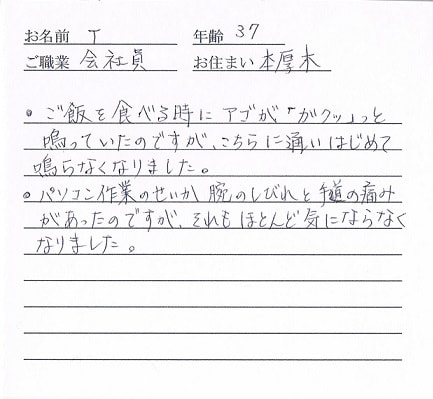 お名前 T 年齢 37
ご職業 会社員 お住まい 本厚木
・ご飯を食べる時にアゴが「ガクッ」っと
鳴っていたのですが、こちらに通いはじめて
鳴らなくなりました。
・パソコン作業のせいか腕のしびれと の痛み
があったのですが、それもほとんど気にならなく
なりました。